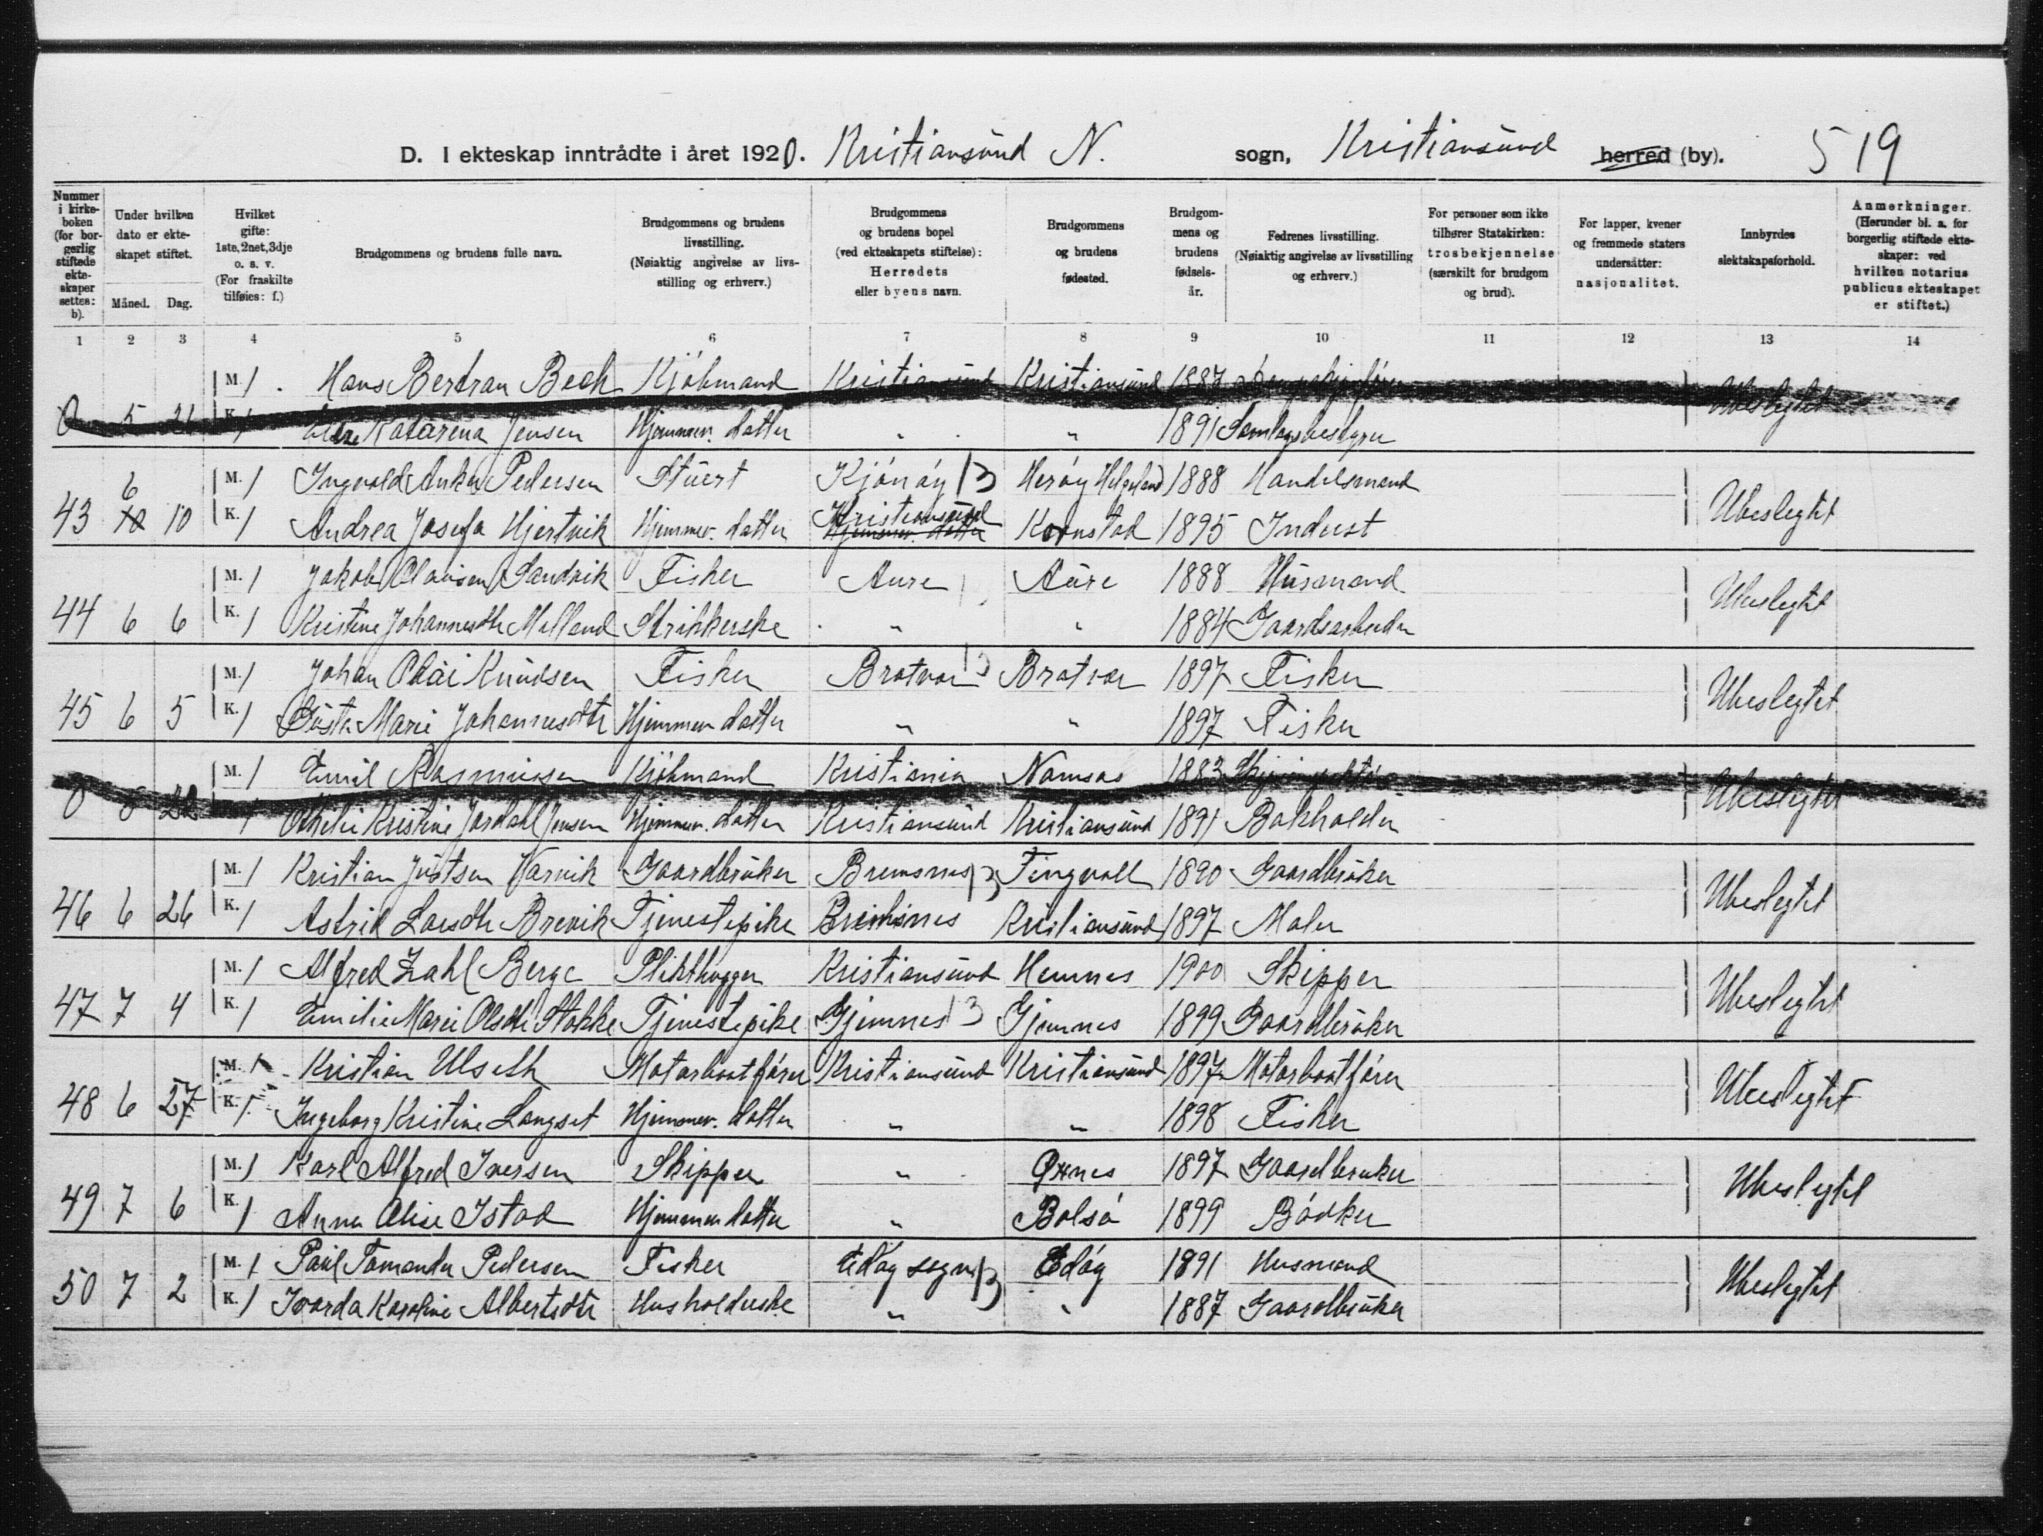 D. I ekteskap inntrådte i året 1920. Kristiansund N. sogn, Kristiansund herred (by). 519
Nummer i kirkeboken (for borgerlig stiftede ekteskaper settes: b).
Under hvilken dato er ekteskapet stiftet.
Måned. Dag.
Hvilket gifte: 1ste, 2net, 3dje o. s. v. (For fraskilte tilføies: f.)
Brudgommens og brudens fulle navn.
Brudgommens og brudens livsstilling. (Nøiaktig angivelse av livsstilling og erhverv.)
Brudgommens og brudens bopel (ved ekteskapets stiftelse): Herredets eller byens navn.
Brudgommens og brudens fødested.
Brudgommens og brudens fødselsår.
Fedrenes livsstilling. (Nøiaktig angivelse av livsstilling og erhverv.)
For personer som ikke tilhører Statskirken: trosbekjennelse (særskilt for brudgom og brud).
For lapper, kvener og fremmede staters undersåtter: nasjonalitet.
Innbyrdes slektskapsforhold.
Anmerkninger. (Herunder bl. a. for borgerlig stiftede ekteskaper: ved hvilken notarius publicus ekteskapet er stiftet.)
1 2 3 4 5 6 7 8 9 10 11 12 13 14
M. 1 Hans Bertran Bech Kjøbmand Kristiansund Kristiansund 1887 Ubeslegtet
0 5 21 K. 1 Katarena Jensen Hjemmev. datter " " 1891 Samlagsbestyrer
6 M. 1 Ingvald Anker Pedersen Stuert Kjönöy 13 Heröy Helgeland 1888 Handelsmand Ubeslegtet
43 10 10 K. 1 Andrea Josefa Hjertvik Hjemmev. datter Kristiansund Hjemmev. datter Kornstad 1895 Inderst
M. 1 Jakob Olavsen Sandvik Fisker Aure 1 Aure 1888 Husmand Ubeslegtet
44 6 6 K. 1 Kristine Johannesdtr Melland Strikkerske " " 1884 Gaardsarbeider
M. 1 Johan Olai Knudsen Fisker Bratvær 13 Bratvær 1897 Fisker Ubeslegtet
45 6 5 K. 1 Marie Johannesdtr Hjemmev datter " " 1897 Fisker
M. 1 Emil Rasmussen Kjöbmand Kristiania Namsos 1883 Ubeslegtet
0 5 22 1 Othelie Kristine Jordahl Jensen Hjemmev. datter Kristiansund Kristiansund 1891 Bokholder
M. 1 Kristian Justsen Varvik Gaardbruker Bremsnes 13 Tingvoll 1890 Gaardbruker Ubeslegtet
46 6 26 K. 1 Astrid Larsdtr Brevik Tjenestepike Bremsnes Kristiansund 1897 Maler
M. 1 Alfred Zahl Berge Plikthugger Kristiansund Hemnes 1900 Skipper Ubeslegtet
47 7 4 K. 1 Emilie Marie Olsdtr Stokke Tjenestepike Gjemnes 13 Gjemnes 1899 Gaardbruker
M. 1 Kristian Ulseth Motorbaatförer Kristiansund Kristiansund 1897 Motorbaatförer Ubeslegtet
48 6 27 K. 1 Ingeborg Kristine Langset Hjemmev. datter " " 1898 Fisker
M. 1 Karl Alfred Iversen Skipper " Öxnes 1897 Gaardbruker Ubeslegtet
49 7 6 K. 1 Anna Elise Istad Hjemmev datter " Bolsö 1899 Bödker
M. 1 Paul Tomander Pedersen Fisker Edöy sogn 13 Edöy 1891 Husmand Ubeslegtet
50 7 2 K. 1 Ivarda Karoline Albertsdtr Husholderske " " 1887 Gaardbruker